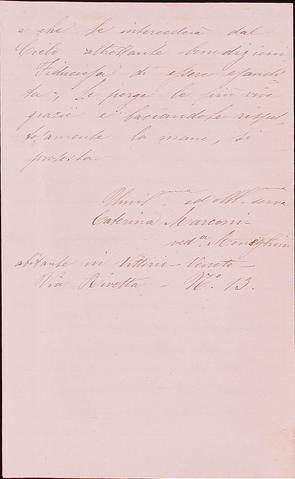 e che le intercederà dal
Cielo altrettante benedizioni
Fiduciosa di essere esaudi
ta, le porge le più vive
grazie e baciandole rispet
tosamente la mano, si
protesta
Umil.ma ed Obb.ma serva
Caterina Marconi
ved.a
abitante in Vittorio-Veneto-
Via Rivetta - N.o 13.